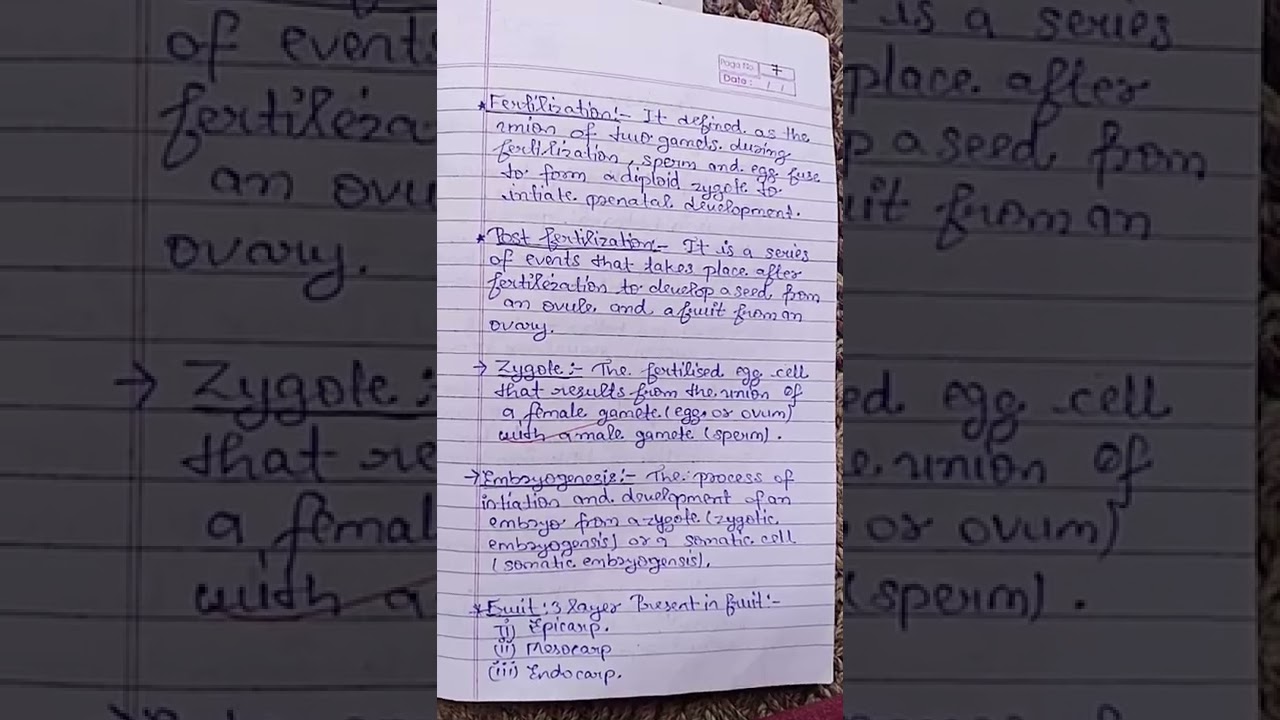 Page No. 7
Date: / /
* Fertilization:- It defined as the
union of two gamets. during
fertilization, sperm and egg fuse
to form a diploid zygote to
intiate prenatal development.
* Post fertilization:- It is a series
of events that takes place after
fertilization to develop a seed from
an ovule, and a fruit from an
ovary.
→ Zygote:- The fertilised egg cell
that results from the union of
a female gamete (egg or ovum)
with a male gamete (sperm).
→ Embryogenesis:- The process of
intiation and development of an
embryo from a zygote (zygotic
embryogensis) or a somatic cell
(somatic embryogensis).
* Fruit: 3 layer Present in fruit:-
(i) Epicarp.
(ii) Mesocarp
(iii) Endocarp.